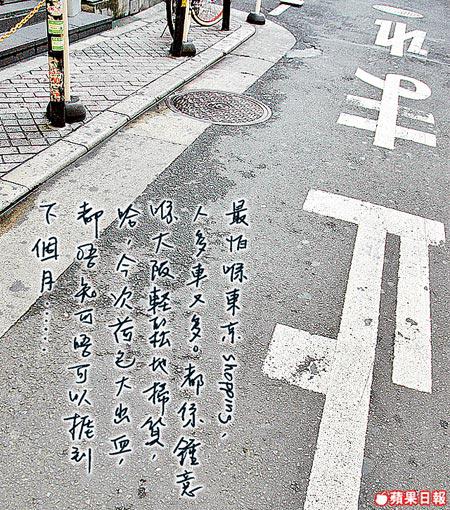 止まれ
最怕喺東京 shopping,
人多車又多。都係鍾意
喺大阪輕鬆地掃貨,
哈,今次荷包大出血,
都唔知可唔可以捱到
下個月......
蘋果日報